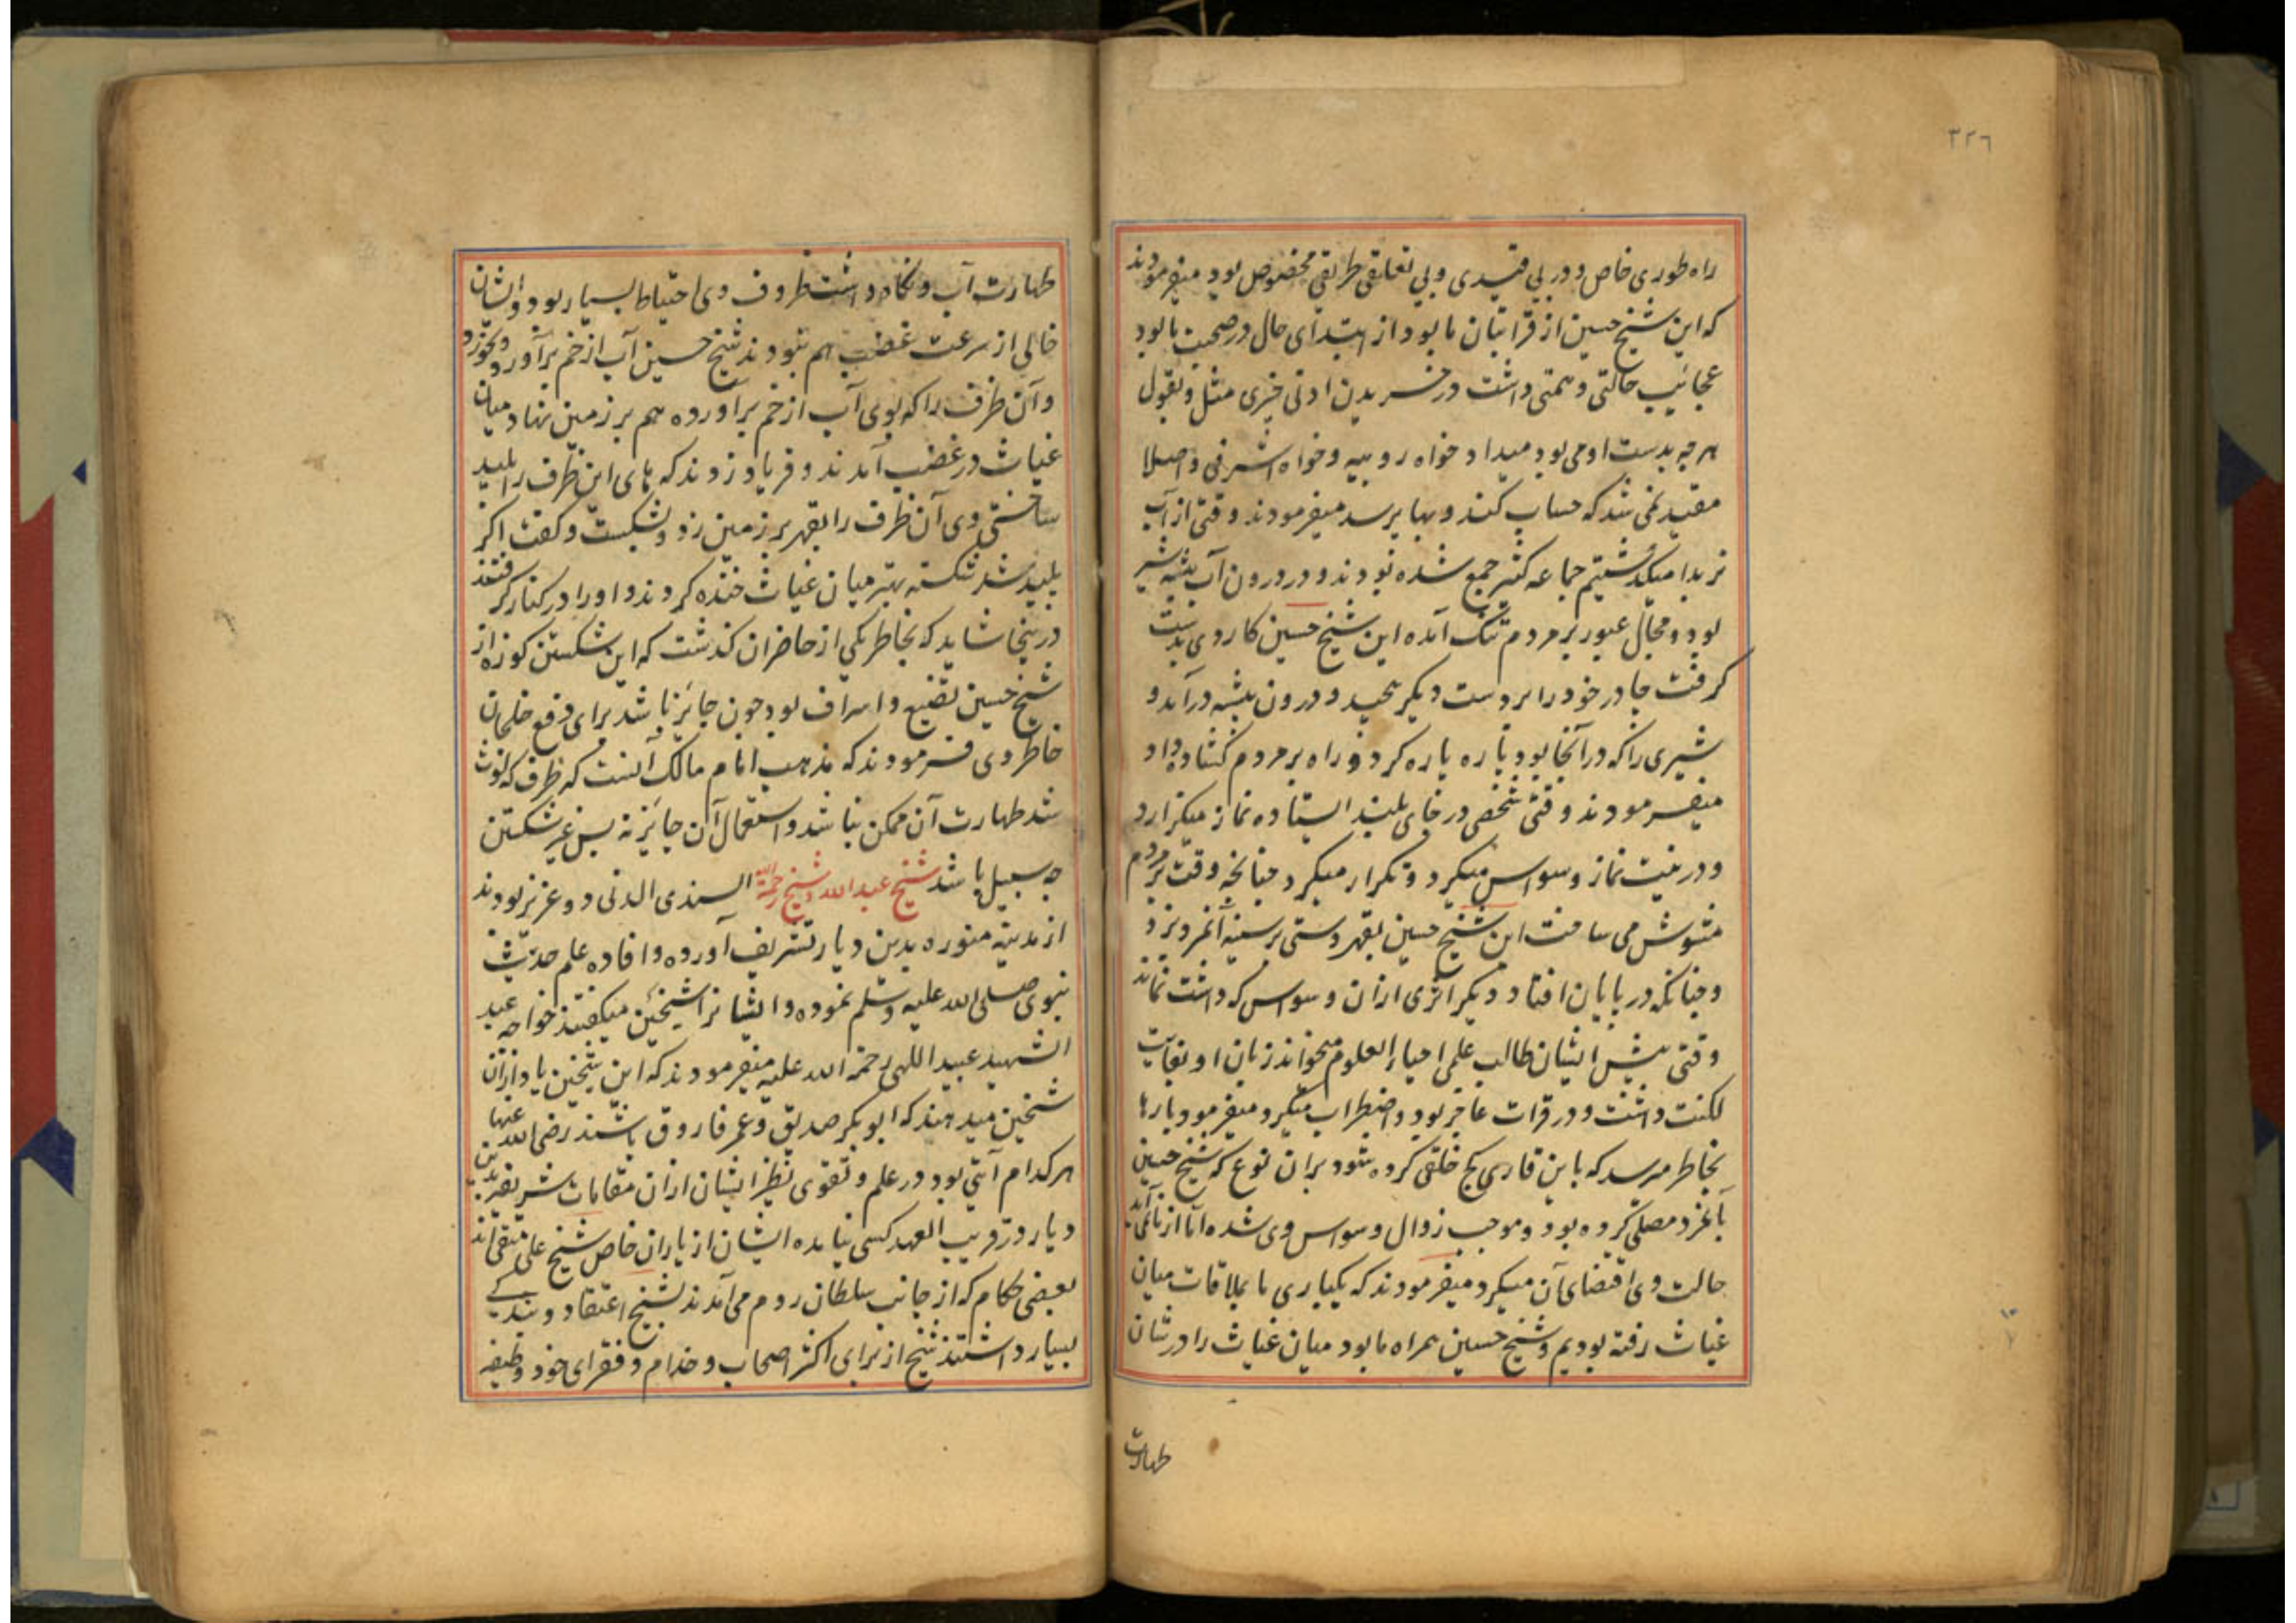 ٣٢٦
راه طوری خاص و در بی قیدی و بی تعلقی طریقی مخصوص بود میفرمودند
که این شیخ حسین از قرابتیان ما بود از ابتدای حال در صحبت ما بود
عجائیب حالتی و همتی داشت در خریدن ادنی چیزی مثل و بقول
هرچه بدست او می بود میداد خواه روپیه و خواه اشرفی و اصلا
مقید نمی شد که حساب کند و بها پرسد میفرمودند وقتی از آب
نربدا میگذشتیم جماعه کثیر جمع شده بودند و در درون آب بیشه شیر
بود و مجال عبور بر مردم تنک آمده این شیخ حسین کاردی بدست
گرفت چادر خود را بر دست دیگر پیچید و درون بیشه درآمد و
شیری را که در آنجا بود پاره پاره کرد و راه بر مردم گشاده داد
میفرمودند وقتی شخصی در جای بلند ایستاده نماز میگزارد
و در نیت نماز وسواس میکرد و تکرار میکرد چنانچه وقت بر مردم
مشوش می ساخت این شیخ حسین بقهر دستی بر سینه آنمرد بزد
و چنانکه در پایان افتاد دیگر اثری از آن وسواس که داشت نماند
وقتی پیش ایشان طالب علمی احیاء العلوم میخواند زبان او بغایت
لکنت داشت و در قرات عاجز بود و اضطراب میکرد میفرمود بارها
بخاطر میرسد که باین قاری کج خلقی کرده شود بر آن نوع که شیخ حسین
بآنمرد مصلی کرده بود و موجب زوال وسواس وی شده اما از ما نمی آید
حالت وی اقتضای آن میکرد میفرمودند که یکباری ما بملاقات میان
غیاث رفته بودیم و شیخ حسین همراه ما بود میان غیاث را در شان
طهارت
طهارت آب و نگاه داشت ظروف وی احتیاط بسیار بود و ایشان
خالی از سرعت غضب هم نبودند شیخ حسین آب از خم برآورد و بخورد
و آن ظرف را که بوی آب از خم برآورده هم بر زمین نهاد میان
غیاث در غضب آمدند و فریاد زدند که های این ظرف را پلید
ساختی وی آن ظرف را بقهر بر زمین زد و بشکست و گفت اگر
پلید شد شکسته بهتر میان غیاث خنده کردند و او را در کنار گرفتند
در ینجا شاید که بخاطر یکی از حاضران گذشت که این شکستن کوزه از
شیخ حسین تضیع و اسراف بود چون جائز باشد برای دفع خلجان
خاطر وی فرمودند که مذهب امام مالک آنست که ظرف که لوث
شد طهارت آن ممکن نباشد و استعمال آن جائز نه پس غیر شکستن
چه سبیل باشد شیخ عبدالله و شیخ رحمةالله السندی المدنی دو عزیز بودند
از مدینه منوره بدین دیار تشریف آورده و افاده علم حدیث
نبوی صلی الله علیه وسلم نموده و ایشانرا شیخین میگفتند خواجه عبد
الشهید عبید اللهی رحمة الله علیه میفرمودند که این شیخین یاد از آن
شیخین میدهند که ابوبکر صدیق و عمر فاروق باشند رضی الله عنهما
هرکدام آیتی بود در علم و تقوی نظیر ایشان از آن مقامات شریفه بدین
دیار در قریب العهد کسی نیامده ایشان از یاران خاص شیخ علی متقی اند
بعضی حکام که از جانب سلطان روم می آمدند بشیخ اعتقاد و بندگی
بسیار داشتند شیخ از برای اکثر اصحاب و خدام و فقرای خود وظیفه